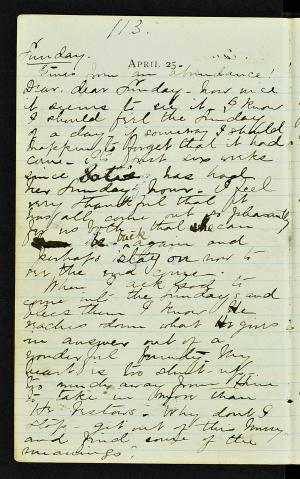 113.
Sunday.
APRIL 25
Gives from an abundance!
Dear, dear Sunday - how nice
it seems to see it. I know
I should feel the Sunday
of a day if someway I should
happen to forget that it had
come. It's just six weeks
since Katie has had
her Sunday hour. I feel
very thankful that it
has all come out so pleasantly
for us both that she can
be back again and
perhaps stay on now to
the end
When I ask God to
come into the Sundays and
bless them I know He
reaches down what He gives
in answer out of a
wonderful My
heart is too shut up
too much away from Him
to take in more than
He bestows. Why don't I
stop - get out of this hurry
and find some of the
meanings.